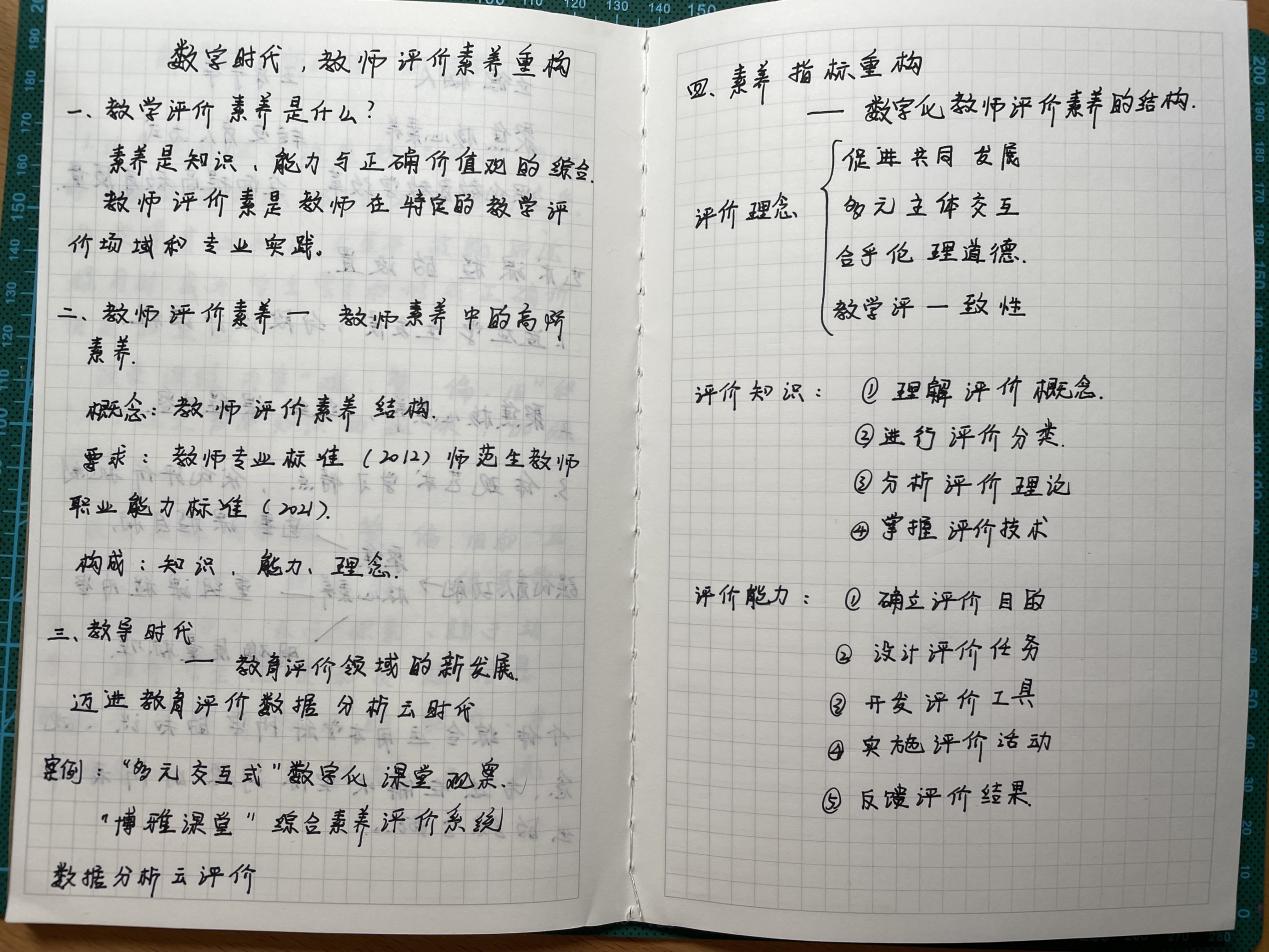 数字时代，教师评价素养重构
一、教学评价素养是什么？
素养是知识、能力与正确价值观的综合.
教师评价素是教师在特定的教学评
价场域和专业实践。
二、教师评价素养— 教师素养中的高阶
素养.
概念：教师评价素养结构.
要求：教师专业标准（2012）师范生教师
职业能力标准（2021）.
构成：知识、能力、理念.
三、教导时代
— 教育评价领域的新发展.
迈进教育评价数据分析云时代
案例：“多元交互式”数字化课堂观察.
“博雅课堂”综合素养评价系统
数据分析云评价
四、素养指标重构
— 数字化教师评价素养的结构.
评价理念
促进共同发展
多元主体交互
合乎伦理道德.
教学评一致性
评价知识：①理解评价概念.
②进行评价分类.
③分析评价理论
④掌握评价技术
评价能力：①确立评价目的
②设计评价任务
③开发评价工具
④实施评价活动
⑤反馈评价结果